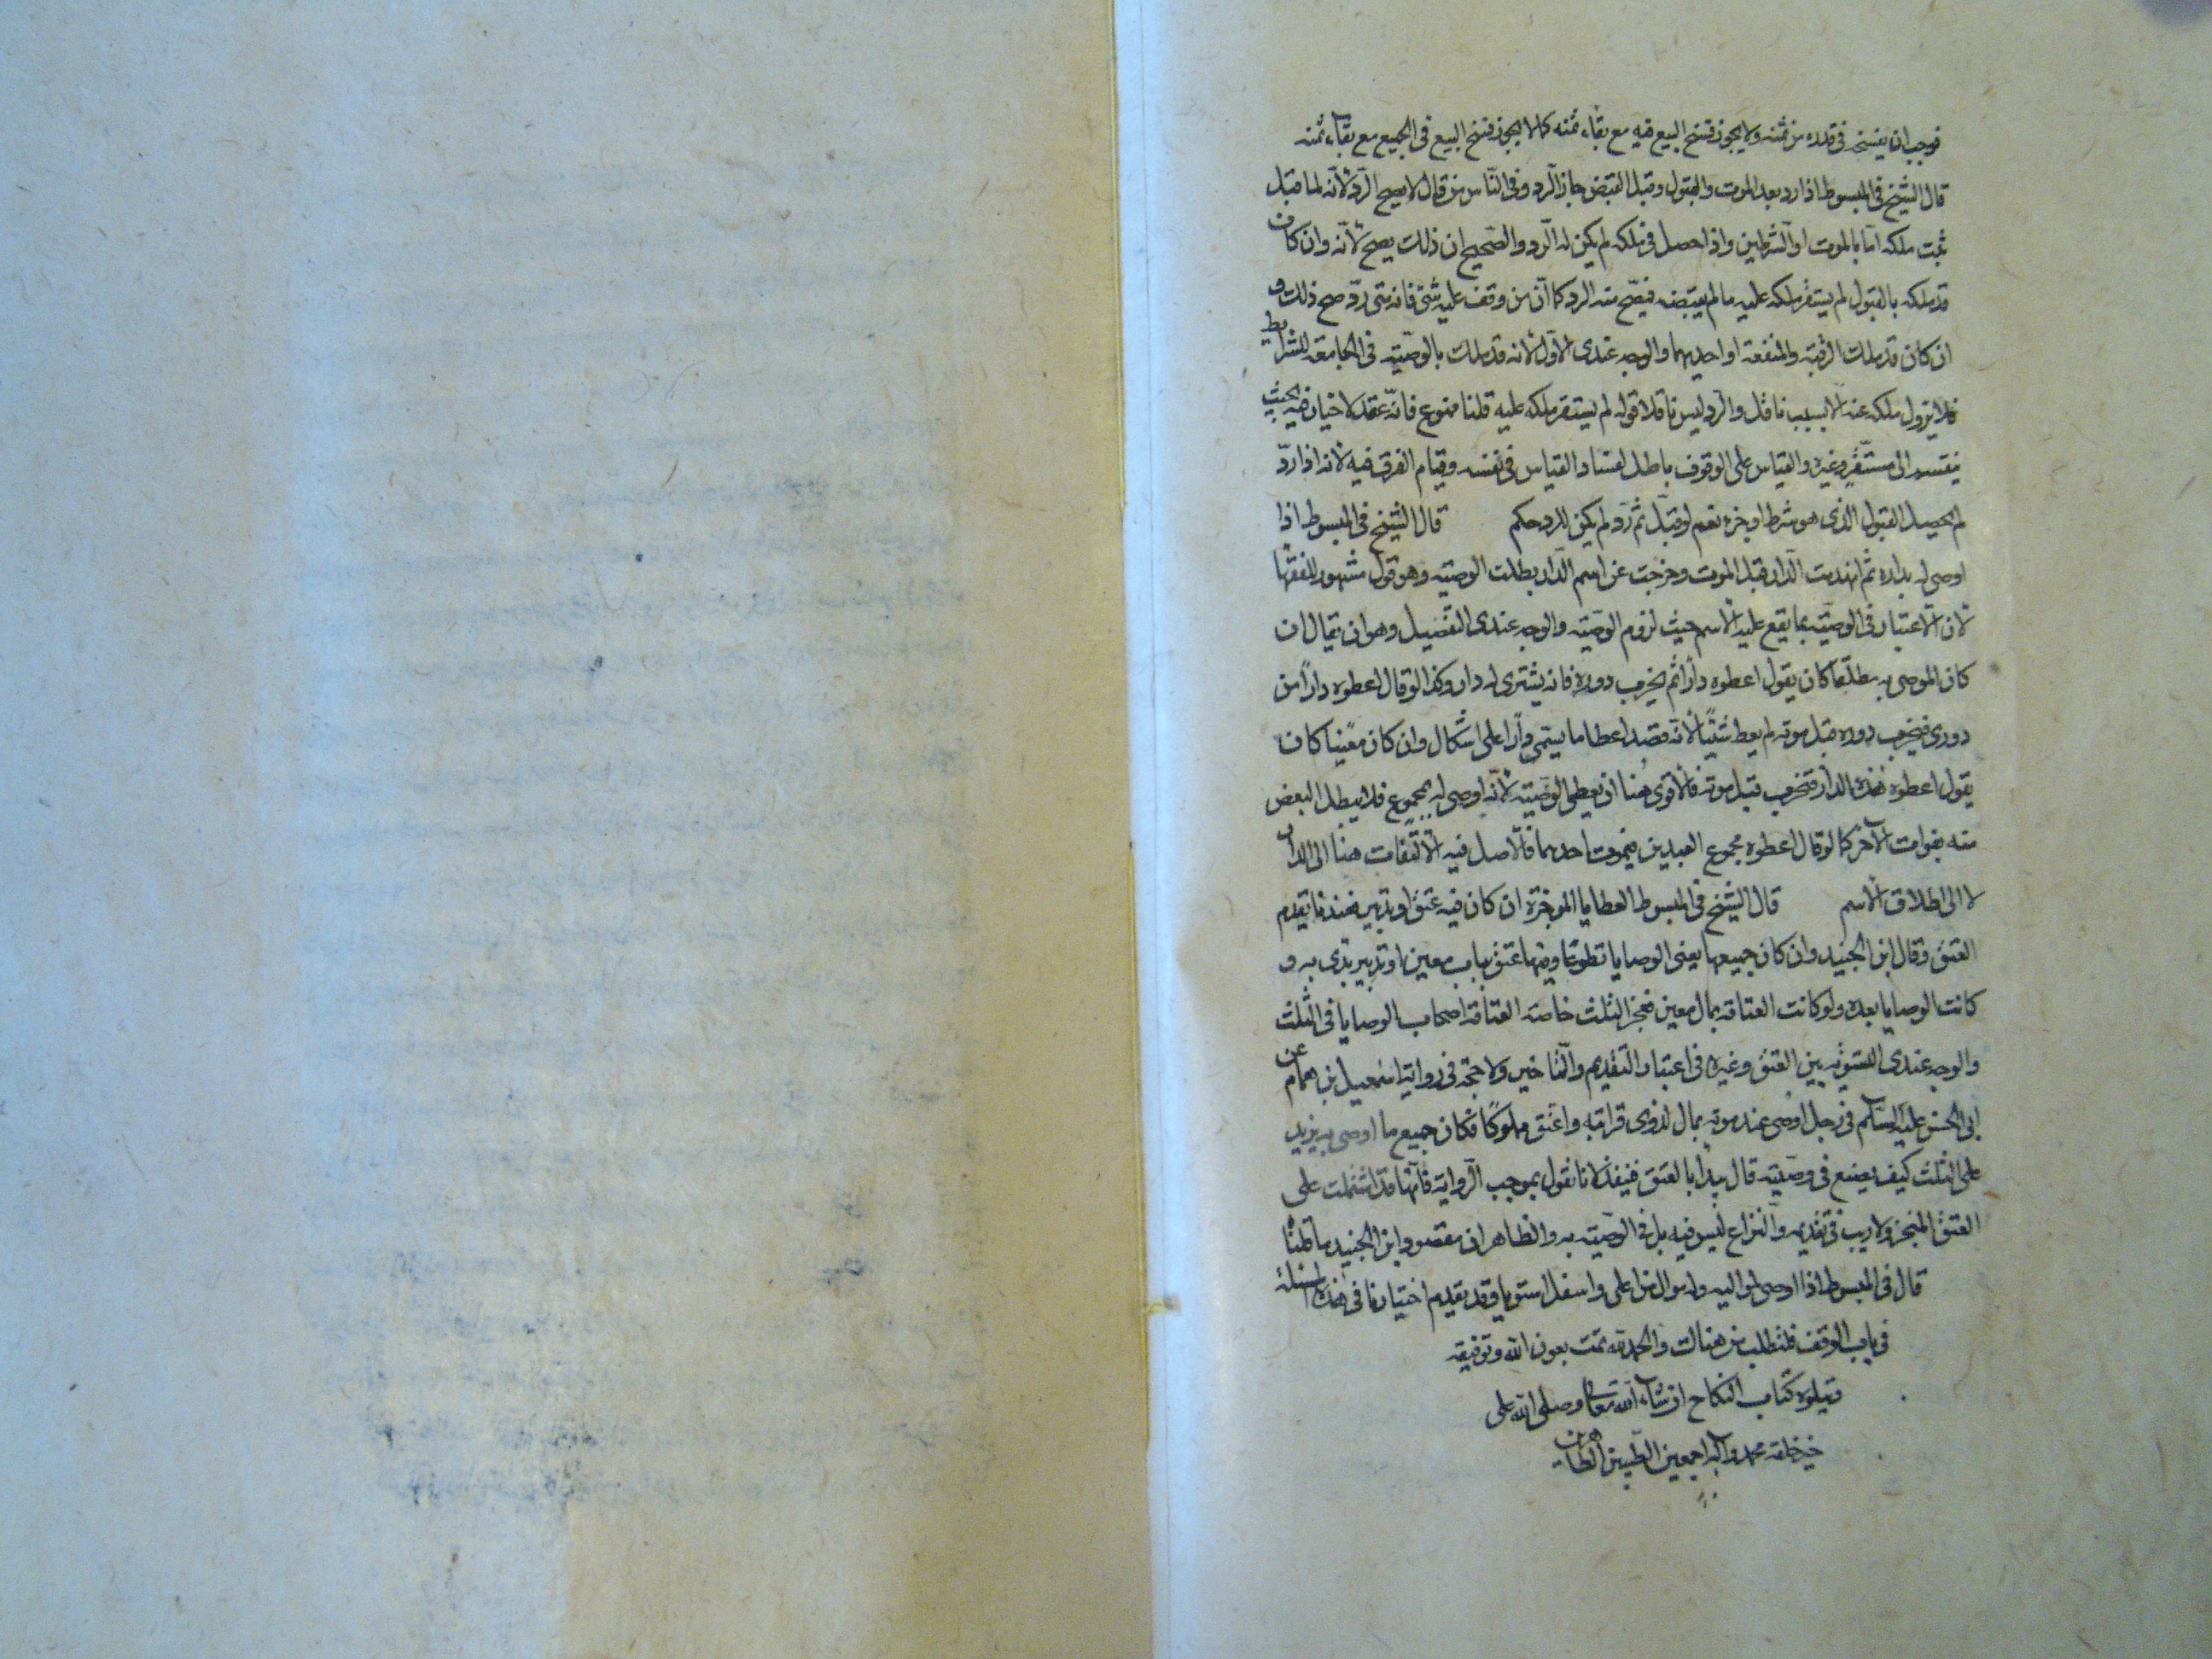 فوجب ان يفسخ في قدره من ثمنه ولا يجوز فسخ البيع فيه مع بقاء ثمنه كما لا يجوز فسخ البيع في الجميع مع بقاء ثمنه
قال الشيخ في المبسوط اذا رد بعد الموت والقبول وقبل القبض جاز الرد وفي الناس من قال لا يصح الرد لانه لما قبل
ثبت ملكه اما بالموت او الشرطين واذا حصل في ملكه لم يكن له الرد والصحيح ان ذلك يصح لانه وان كان
قد ملكه بالقبول لم يستقر ملكه عليه ما لم يقبضه فيصح منه الرد كما ان من وقف عليه شئ فانه متى رد صح ذلك و
ان كان قد ملك الرقبة والمنفعة او احديهما والوجه عندي الاول لانه قد ملك بالوصية في الجامعة للشرايط
فلا يزول ملكه عنه الا بسبب ناقل والرد ليس ناقلا قوله لم يستقر ملكه عليه قلنا ممنوع فانه عقد لا خيار فيه بحيث
ينقسم الى مستقر وغيره والقياس على الوقوف باطل لفساد القياس في نفسه وقيام الفرق فيه لانه اذا رد
لم يحصل القبول الذي هو شرط او جزء نعم لو قبل ثم رد لم يكن للرد حكم قال الشيخ في المبسوط اذا
اوصى له بداره ثم انهدمت الدار قبل الموت وخرجت عن اسم الدار بطلت الوصية وهو قول مشهور للفقها
لان الاعتبار في الوصية بما يقع عليه الاسم حيث لزوم الوصية والوجه عندي التفصيل وهو ان يقال ان
كان الموصى به مطلقا كان يقول اعطوه دارا ثم يخرب دوره فانه يشترى له دار وكذا لو قال اعطوه دارا من
دوري فيخرب دوره قبل موته لم يعط شيئا لانه قصد اعطا ما يسمى دارا على اشكال وان كان معينا كان
يقول اعطوه هذه الدار فتخرب قبل موته فالاقوى هنا ان يعطى الوصية لانه اوصى له بمجموع فلا يبطل البعض
منه بفوات الاخر كما لو قال اعطوه مجموع العبدين فيموت احدهما فالاصل فيه الالتفات هنا الى الدار
لا الى اطلاق الاسم قال الشيخ في المبسوط العطايا الموخرة ان كان فيه عتق او تدبير فعندنا يقدم
العتق وقال ابن الجنيد وان كان جميعها يعني الوصايا تطوعا ومنها عتق باب معين او تدبير بدي به و
كانت الوصايا بعده ولو كانت العتاقة بمال معين فعجز الثلث خاصه العتاقة اصحاب الوصايا في الثلث
والوجه عندي التسوية بين العتق وغيره في اعتبار التقديم والتاخير ولا حجة في رواية اسمعيل بن همام عن
ابي الحسن عليه السلام في رجل اوصى عند موته بمال لذوي قرابته واعتق مملوكا فكان جميع ما اوصى به يزيد
على الثلث كيف يصنع في وصيته قال يبدا بالعتق فينفذ لانا نقول بموجب الرواية فانها قد اشتملت على
العتق المنجز ولا ريب في تقديمه والنزاع ليس فيه بل في الوصية به والظاهر ان مقصود ابن الجنيد ما قلنا
قال في المبسوط اذا اوصى لمواليه وله موال من اعلى واسفل استويا وقد تقدم اختيارنا في هذه المسئلة
في باب الوقف فلتطلب من هناك والحمد لله تمت بعون الله وتوفيقه
ويتلوه كتاب النكاح ان شاء الله تعالى وصلى الله على
خير خلقه محمد واله اجمعين الطيبين الطاهرين